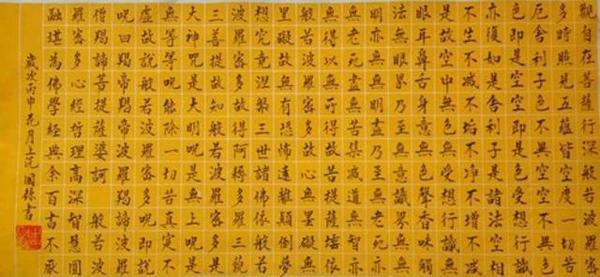 觀自在菩薩行深般若波羅蜜
多時照見五蘊皆空度一切苦
厄舍利子色不異空空不異色
色即是空空即是色受想行識
亦復如是舍利子是諸法空相
不生不滅不垢不淨不增不減
是故空中無色無受想行識無
眼耳鼻舌身意無色聲香味觸
法無眼界乃至無意識界無無
明亦無無明盡乃至無老死亦
無老死盡無苦集滅道無智亦
無得以無所得故菩提薩埵依
般若波羅蜜多故心無罣礙無
罣礙故無有恐怖遠離顛倒夢
想究竟涅槃三世諸佛依般若
波羅蜜多故得阿耨多羅三藐
三菩提故知般若波羅蜜多是
大神呪是大明呪是無上呪是
無等等呪能除一切苦真實不
虛故說般若波羅蜜多呪即說
呪曰羯諦羯諦波羅羯諦波羅
僧羯諦菩提薩婆訶 般若波
羅蜜多心經哲理高深智慧圓
融堪為佛學經典余百書不厭
歲次丙申花月 國錄書